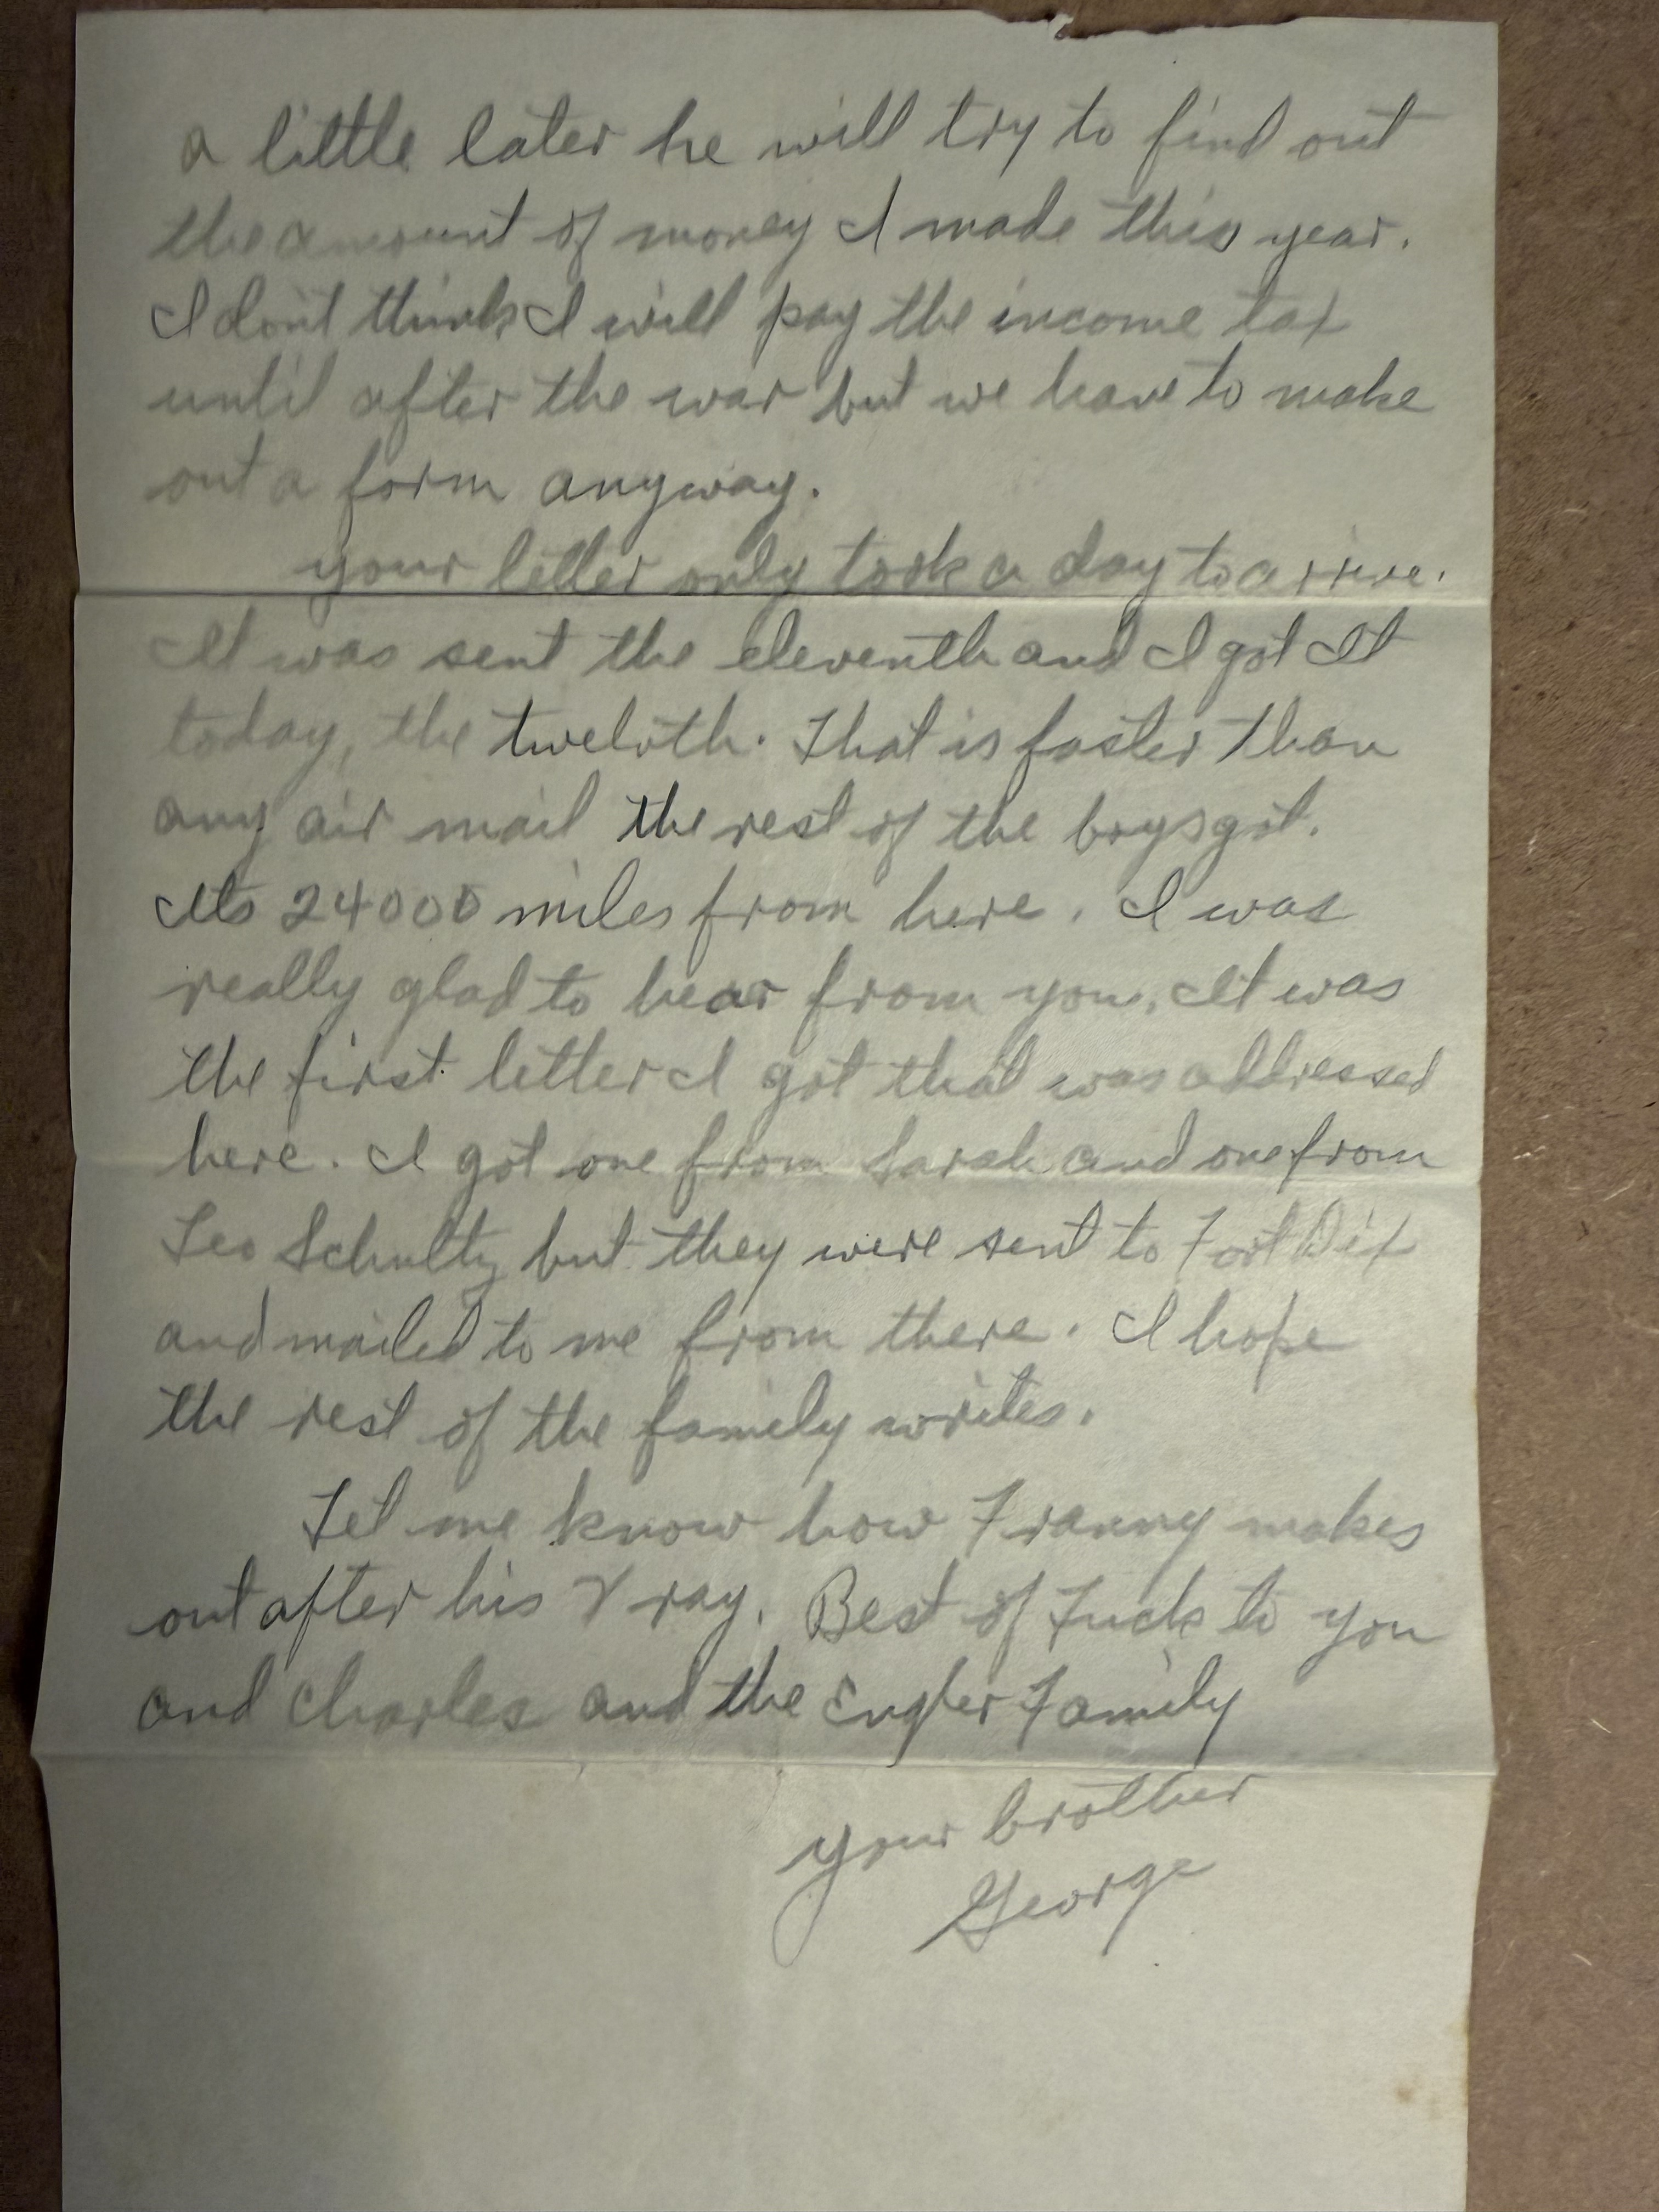 a little later he will try to find out
the amount of money I made this year.
I don't think I will pay the income tax
until after the war but we have to make
out a form anyway.
your letter only took a day to arrive.
It was sent the eleventh and I got It
today, the twelvth. That is faster than
any air mail the rest of the boys got.
Its 24000 miles from here. I was
really glad to hear from you. It was
the first letter I got that was addressed
here. I got one from Sarah and one from
Leo Schultz but they were sent to Fort Dix
and mailed to me from there. I hope
the rest of the family writes.
Let me know how Franny makes
out after his X ray. Best of Luck to you
and Charles and the Family
your brother
George